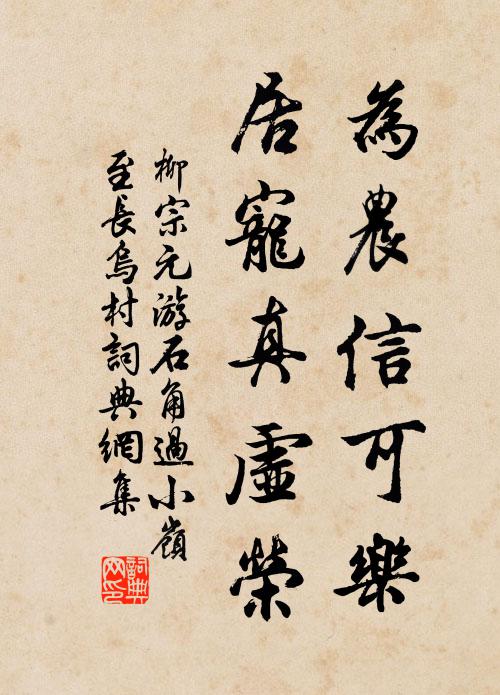 為農信可樂
居寵真虛榮
柳宗元游石角過小嶺
至長烏村詞典網集
詞典网印